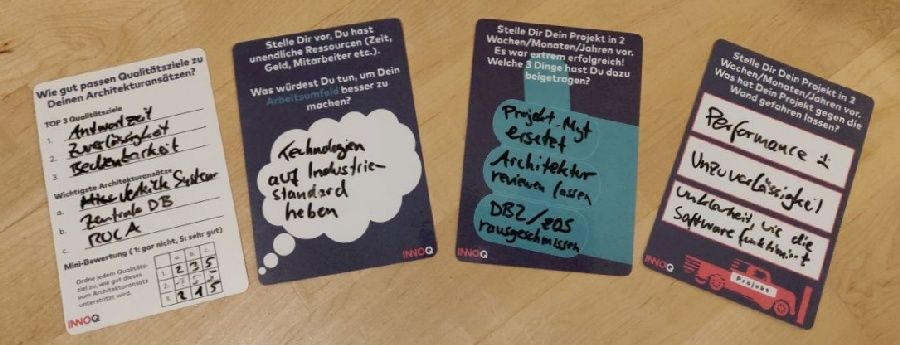 Wie gut passen Qualitätsziele zu
Deinen Architekturansätzen?
TOP 3 Qualitätsziele
1. Antwortzeit
2. Zuverlässigkeit
3. Bedienbarkeit
Wichtigste Architekturansätze
a.
b. Zentrale DB
c. ROCA
Mini-Bewertung (1: gar nicht, 5: sehr gut)
Ordne jedem Qualitäts-
ziel zu, wie gut dieses
vom Architekturansatz
unterstützt wird.
a. b. c.
1. 2 3 5
2.
3. 2 1 5
INNOQ
Stelle Dir vor, Du hast
unendliche Ressourcen (Zeit,
Geld, Mitarbeiter etc.).
Was würdest Du tun, um Dein
Arbeitsumfeld besser zu
machen?
Technologien
auf Industrie-
standard
heben
INNOQ
Stelle Dir Dein Projekt in 2
Wochen/Monaten/Jahren vor.
Es war extrem erfolgreich!
Welche 3 Dinge hast Du dazu
beigetragen?
Projekt. Mgt
ersetzt
Architektur
reviewen lassen
DB2/zOS
rausgeschmissen
INNOQ
Stelle Dir Dein Projekt in 2
Wochen/Monaten/Jahren vor.
Was hat Dein Projekt gegen die
Wand gefahren lassen?
Performance
Unzuverlässigkeit
Unklarheit wie die
Software funktioniert
INNOQ
Projekt